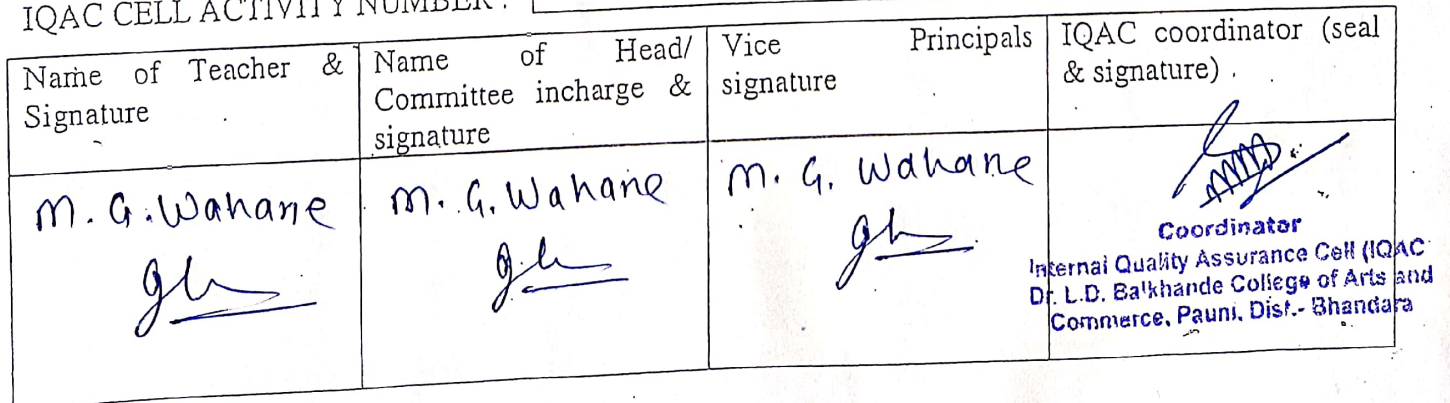 IQAC CELL ACTIVITY NUMBER :
Name of Teacher &
Signature
Name of Head/
Committee incharge &
signature
Vice Principals
signature
IQAC coordinator (seal
& signature)
M. G. Wahane
M. G. Wahane
M. G. Wahane
Coordinator
Internal Quality Assurance Cell (IQAC
Dr. L.D. Balkhande College of Arts and
Commerce, Pauni, Dist.- Bhandara